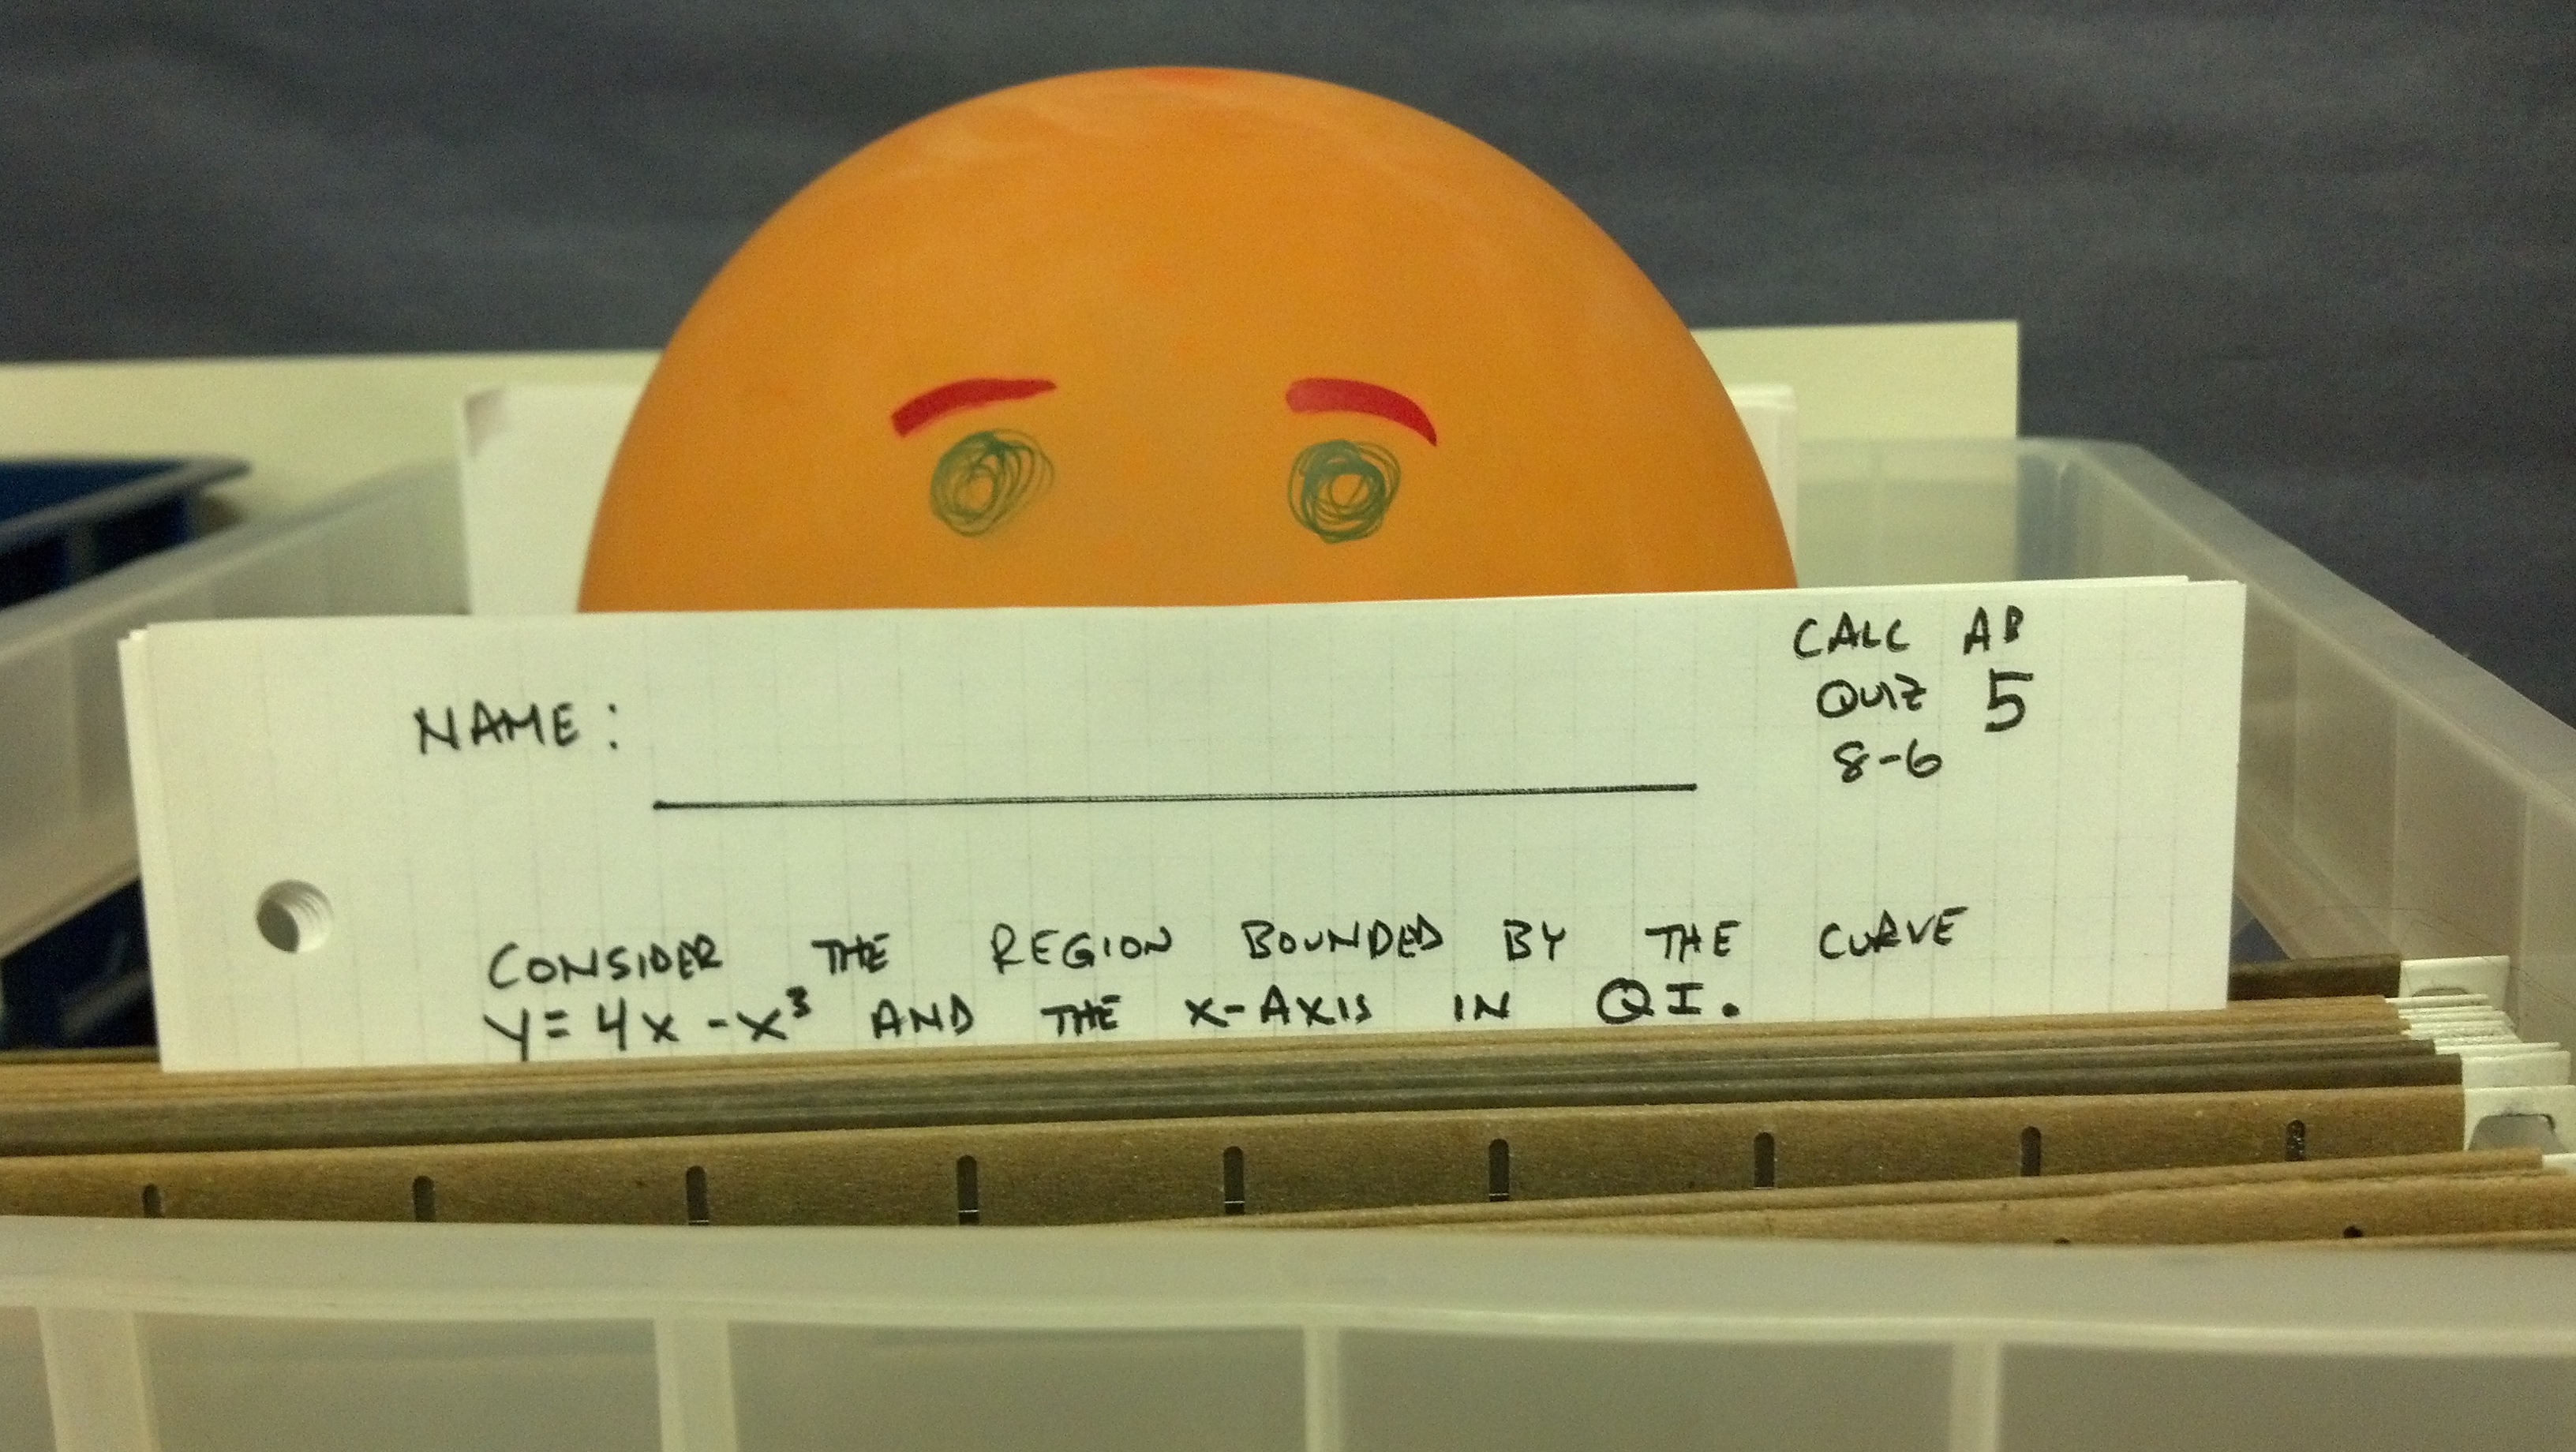 CALC AB
NAME: QUIZ 5
8-6
CONSIDER THE REGION BOUNDED BY THE CURVE
Y=4X-X³ AND THE X-AXIS IN QI.